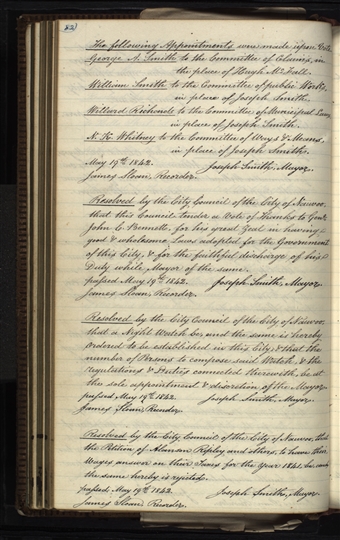 82)
The following Appointments were made upon Vote.
George A. Smith to the Committee of Claims, in
the place of Hugh McFall.
William Smith to the Committee of public Works,
in place of Joseph Smith.
Willard Richards to the Committee of Municipal Laws,
in place of Joseph Smith.
N. K. Whitney to the Committee of Ways & Means,
in place of Joseph Smith.
May 19th 1842. Joseph Smith, Mayor.
James Sloan, Recorder.
Resolved by the City Council of the City of Nauvoo,
that this Council tender a Vote of Thanks to Genl.
John C. Bennett, for his great Zeal in having
good & wholesome Laws adopted for the Government
of this City, & for the faithful discharge of his
Duty while Mayor of the same.
passed May 19th 1842. Joseph Smith, Mayor.
James Sloan, Recorder.
Resolved by the City Council of the City of Nauvoo,
that a Night Watch be, and the same is hereby
ordered to be established in this City, & that the
number of Persons to compose said Watch, & the
regulations & Duties connected therewith, be at
the sole appointment & discretion of the Mayor.
passed May 19th 1842. Joseph Smith, Mayor.
James Sloan, Recorder.
Resolved by the City Council of the City of Nauvoo, that
the Petition of Alanson Ripley and others, to have their
Wages answer on their Taxes for the Year 1841, be, and
the same hereby is rejected.
passed May 19th 1842. Joseph Smith, Mayor
James Sloan, Recorder.